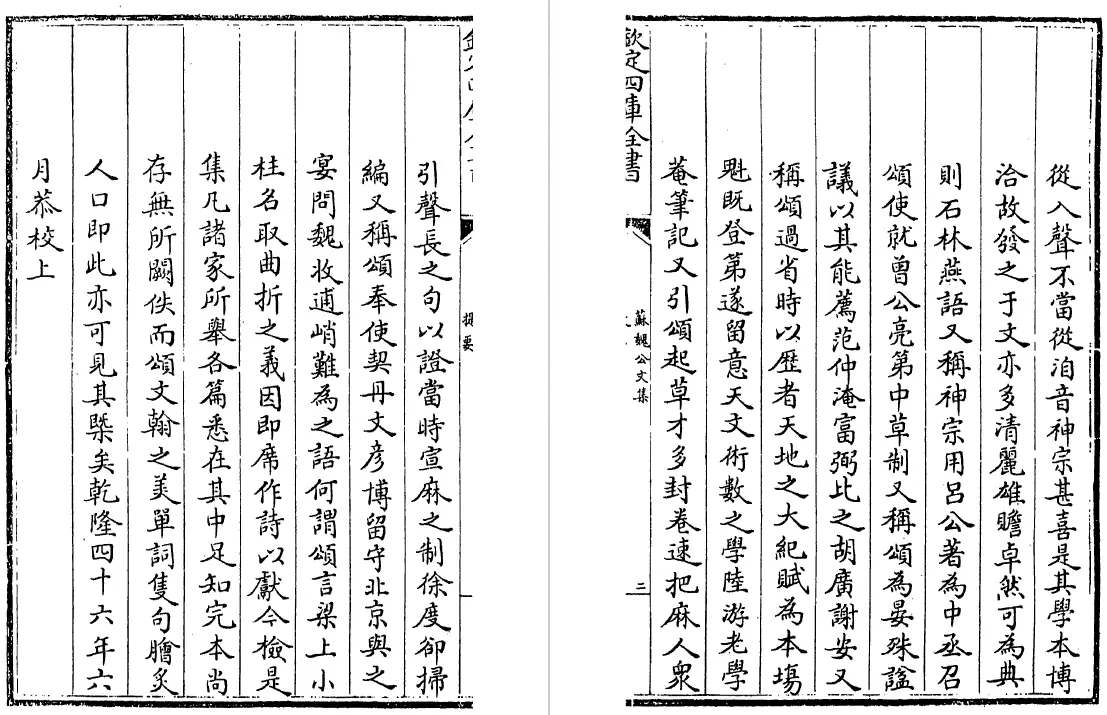 從入聲不當從洎音神宗甚喜是其學本博
洽故發之于文亦多清麗雄贍卓然可為典
則石林燕語又稱神宗用呂公著為中丞召
頌使就曾公亮第中草制又稱頌為晏殊諡
議以其能薦范仲淹富弼比之胡廣謝安又
稱頌過省時以歷者天地之大紀賦為本場
魁既登第遂留意天文術數之學陸游老學
菴筆記又引頌起草才多封卷速把麻人衆
欽定四庫全書
蘇魏公文集
三
提要
引聲長之句以證當時宣麻之制徐度卻掃
編又稱頌奉使契丹文彥博留守北京與之
宴問魏收逋峭難為之語何謂頌言梁上小
柱名取曲折之義因即席作詩以獻今檢是
集凡諸家所舉各篇悉在其中足知完本尚
存無所闕佚而頌文翰之美單詞隻句膾炙
人口即此亦可見其槩矣乾隆四十六年六
月恭校上